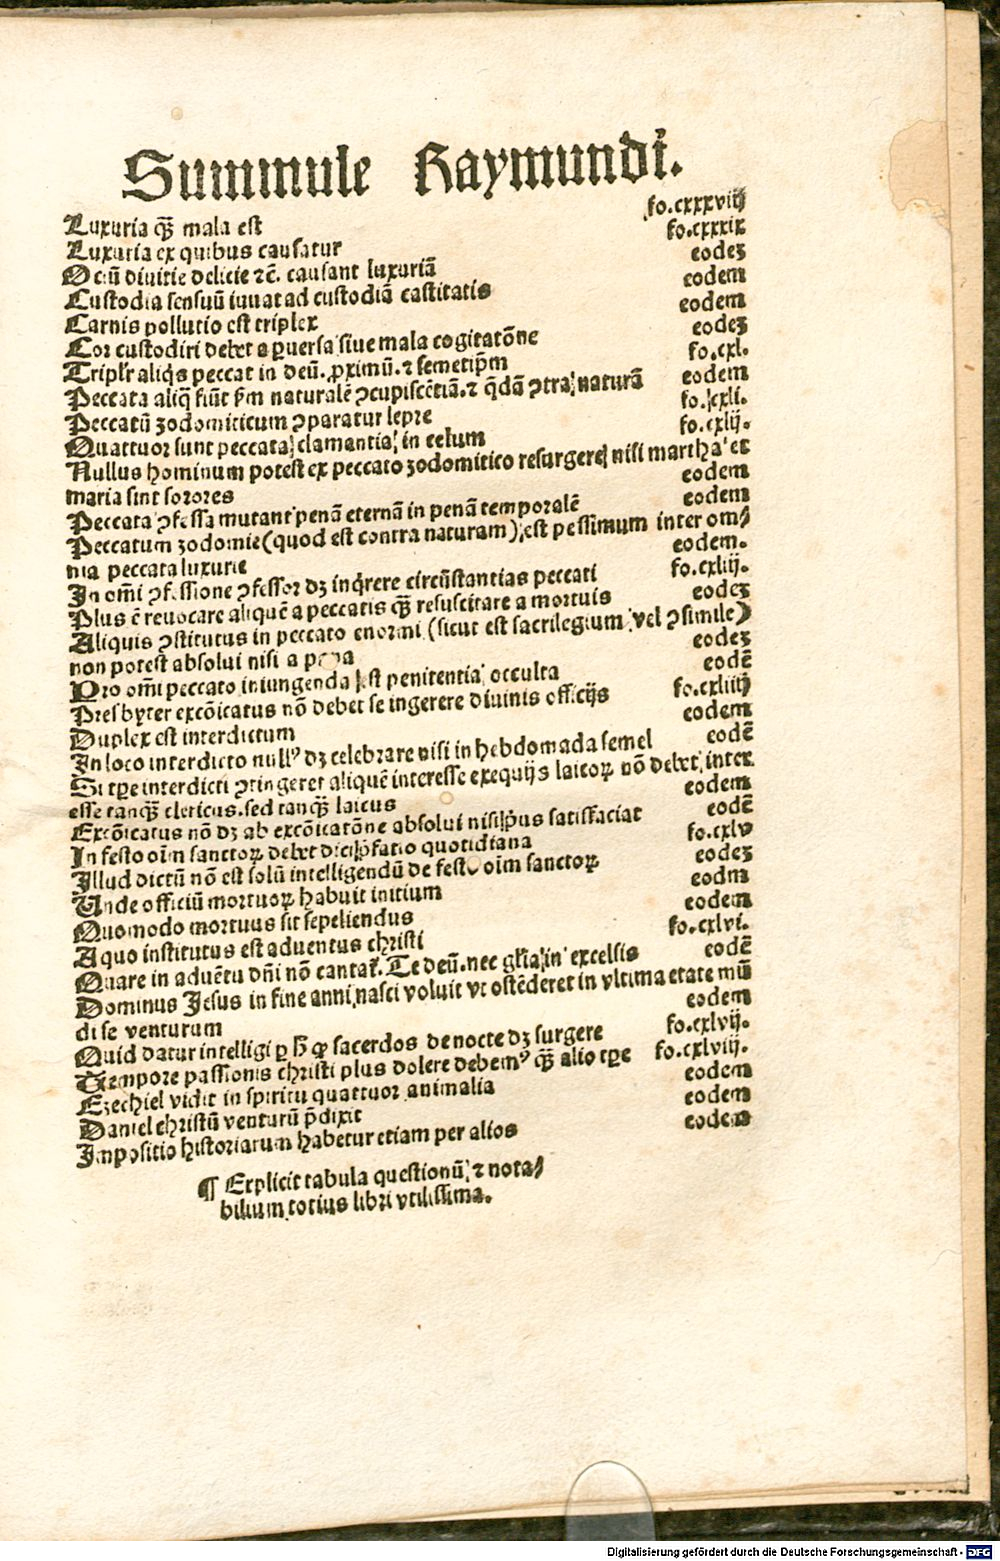 Summule Raymundi.
Luxuria qȝ mala est fo.cxxxviij
Luxuria ex quibus causatur fo.cxxxix
Ociū diuitie delicie ⁊c̄. causant luxuriā eodeȝ
Custodia sensuū iuuat ad custodiā castitatis eodem
Carnis pollutio est triplex eodem
Cor custodiri debet a ꝑuersa siue mala cogitatōne eodeȝ
Triplr̄ aliq̇s peccat in deū. ꝓximū. ⁊ semetip̄m fo.cxl.
Peccata aliq̄ fiūt p̄m naturalē ꝯcupiscētiā. ⁊ q̄dā ꝯtra naturā eodem
Peccatū zodomiticum ꝯparatur lepre fo.cxli.
Quattuor sunt peccata clamantia in celum fo.cxlij.
Nullus hominum potest ex peccato zodomitico resurgere nisi martha et
maria sint sorores eodem
Peccata ꝯfessa mutant penā eternā in penā temporalē eodem
Peccatum zodomie (quod est contra naturam) est pessimum inter om/
nia peccata luxurie eodem.
In om̄i ꝯfessione ꝯfessor dȝ inq̇rere circūstantias peccati fo.cxliij.
Plus ē reuocare aliquē a peccatis qȝ resuscitare a mortuis eodeȝ
Aliquis ꝯstitutus in peccato enormi (sicut est sacrilegium vel ꝯsimile)
non potest absolui nisi a papa eodeȝ
Pro om̄i peccato iniungenda est penitentia occulta eodē
Presbyter excōicatus nō debet se ingerere diuinis officijs fo.cxliiij
Duplex est interdictum eodem
In loco interdicto nullꝰ dȝ celebrare nisi in hebdomada semel eodē
Si tꝑe interdicti ꝯtingeret aliquē interesse exequijs laicoꝝ nō debet inter
esse tanqȝ clericus. sed tanqȝ laicus eodem
Excōicatus nō dȝ ab excōicatōne absolui nisi prius satisfaciat eodē
In festo oīm sanctoꝝ debet dici p̄fatio quotidiana fo.cxlv
Illud dictū nō est solū intelligendū de festo oīm sanctoꝝ eodeȝ
Unde officiū mortuoꝝ habuit initium eodm
Quomodo mortuus sit sepeliendus eodem
A quo institutus est aduentus christi fo.cxlvi.
Quare in aduētu dn̄i nō cantat̄. Te deū. nec gl̄ia in excelsis eodē
Dominus Jesus in fine anni nasci voluit vt ostēderet in vltima etate mū
di se venturum eodem
Quid datur intelligi ꝑ h̄ ꝙ sacerdos de nocte dȝ surgere fo.cxlvij.
Tempore passionis christi plus dolere debemꝰ qȝ alio tꝑe fo.cxlviij.
Ezechiel vidit in spiritu quattuor animalia eodem
Daniel christū venturū p̄dixit eodem
Impositio historiarum habetur etiam per alios eodem
¶ Explicit tabula questionū ⁊ nota/
bilium totius libri vtilissima.
Digitalisierung gefördert durch die Deutsche Forschungsgemeinschaft - DFG